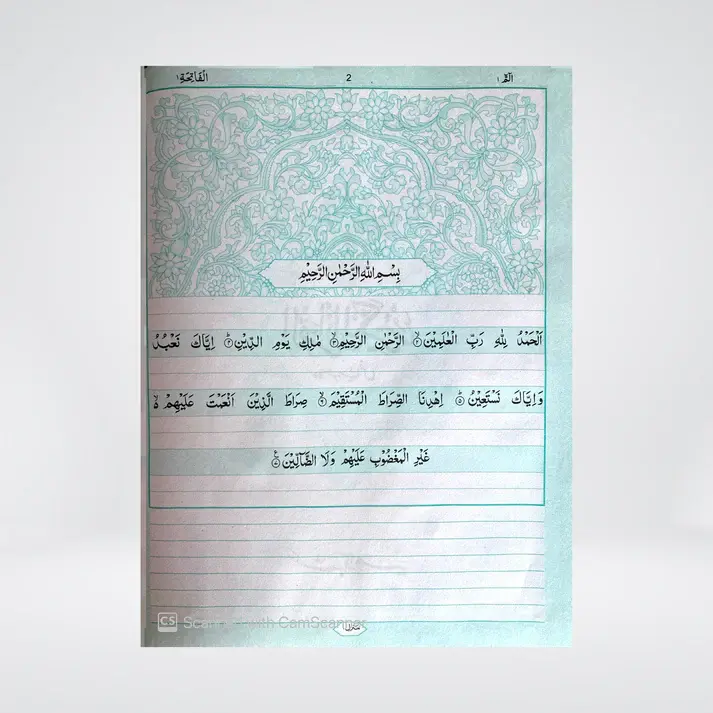 الٓمّٓ ١ 2 الْفَاتِحَة ١
بِسْمِ اللهِ الرَّحْمٰنِ الرَّحِيْمِ
اَلْحَمْدُ لِلّٰهِ رَبِّ الْعٰلَمِيْنَ ۝١ الرَّحْمٰنِ الرَّحِيْمِ ۝٢ مٰلِكِ يَوْمِ الدِّيْنِ ۝٣ اِيَّاكَ نَعْبُدُ
وَاِيَّاكَ نَسْتَعِيْنُ ۝٥ اِهْدِنَا الصِّرَاطَ الْمُسْتَقِيْمَ ۝٦ صِرَاطَ الَّذِيْنَ اَنْعَمْتَ عَلَيْهِمْ
غَيْرِ الْمَغْضُوْبِ عَلَيْهِمْ وَلَا الضَّآلِّيْنَ ۝٧
CS Scanned with CamScanner
منزل ١